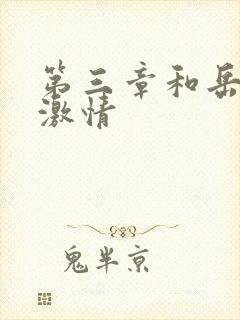 第三章和岳
激情
鬼半京